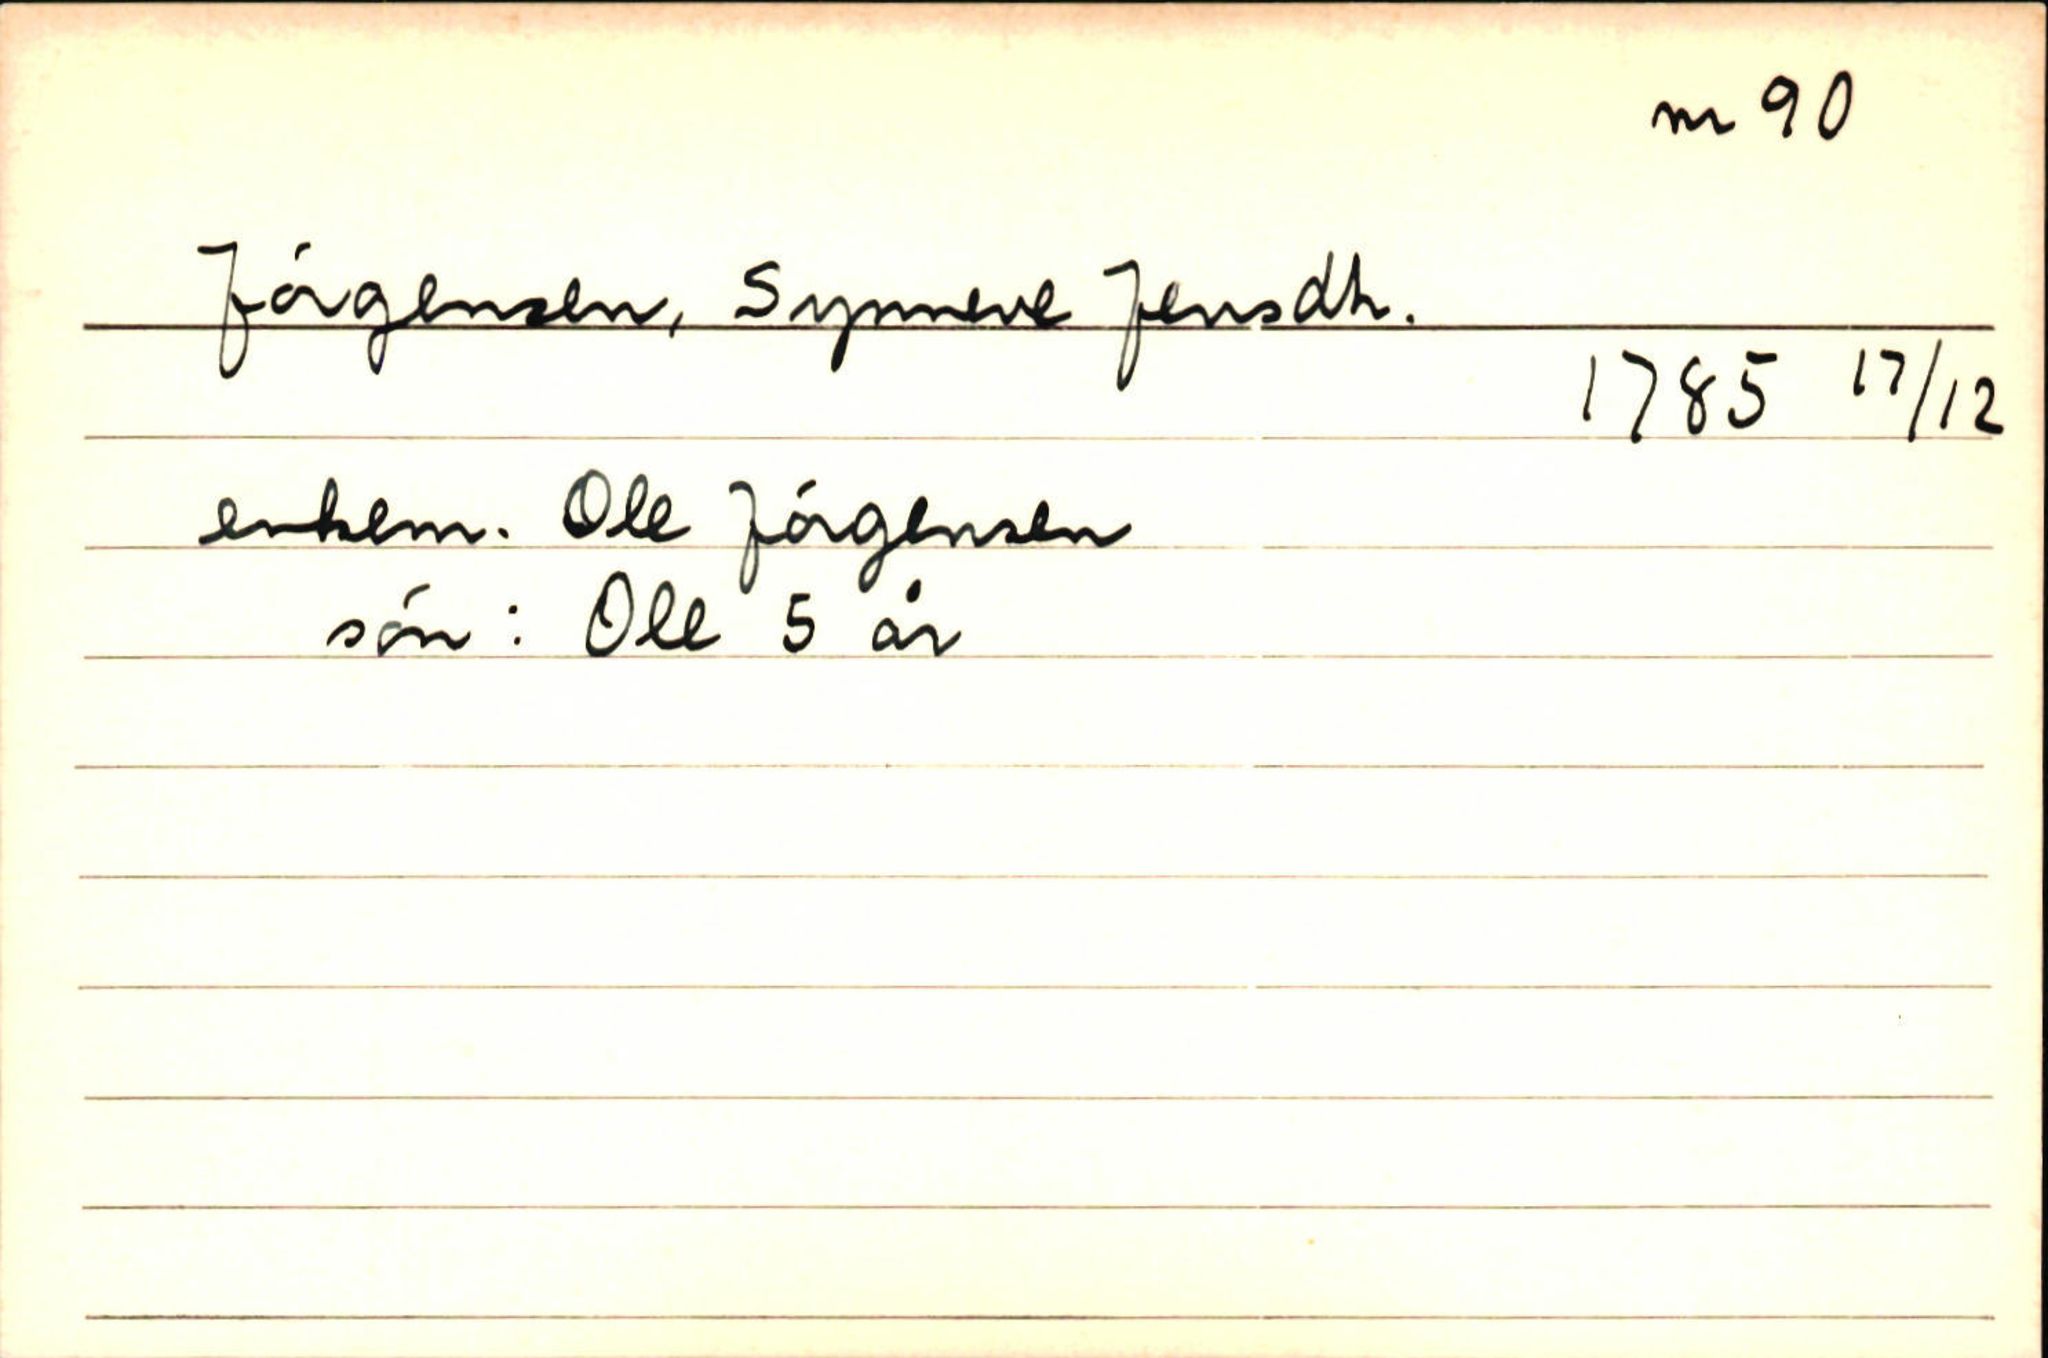 nr 90
Jórgensen, Synneve Jensdtr.
1785 17/12
enkem. Ole Jórgensen
són: Ole 5 år